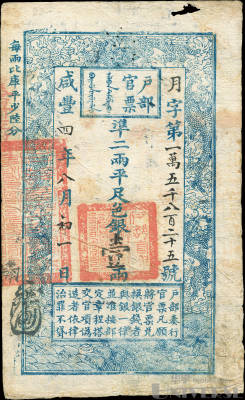 戶部官票
月字第一萬五千八百二十五號
準二兩平足色銀壹兩
咸豐四年八月初一日
每兩比庫平少陸分
戶部奏行
官票凡願
將官票兌
換銀錢者
與銀一律
並准按部
定章程搭
交官項偽
造者依律
治罪不貸